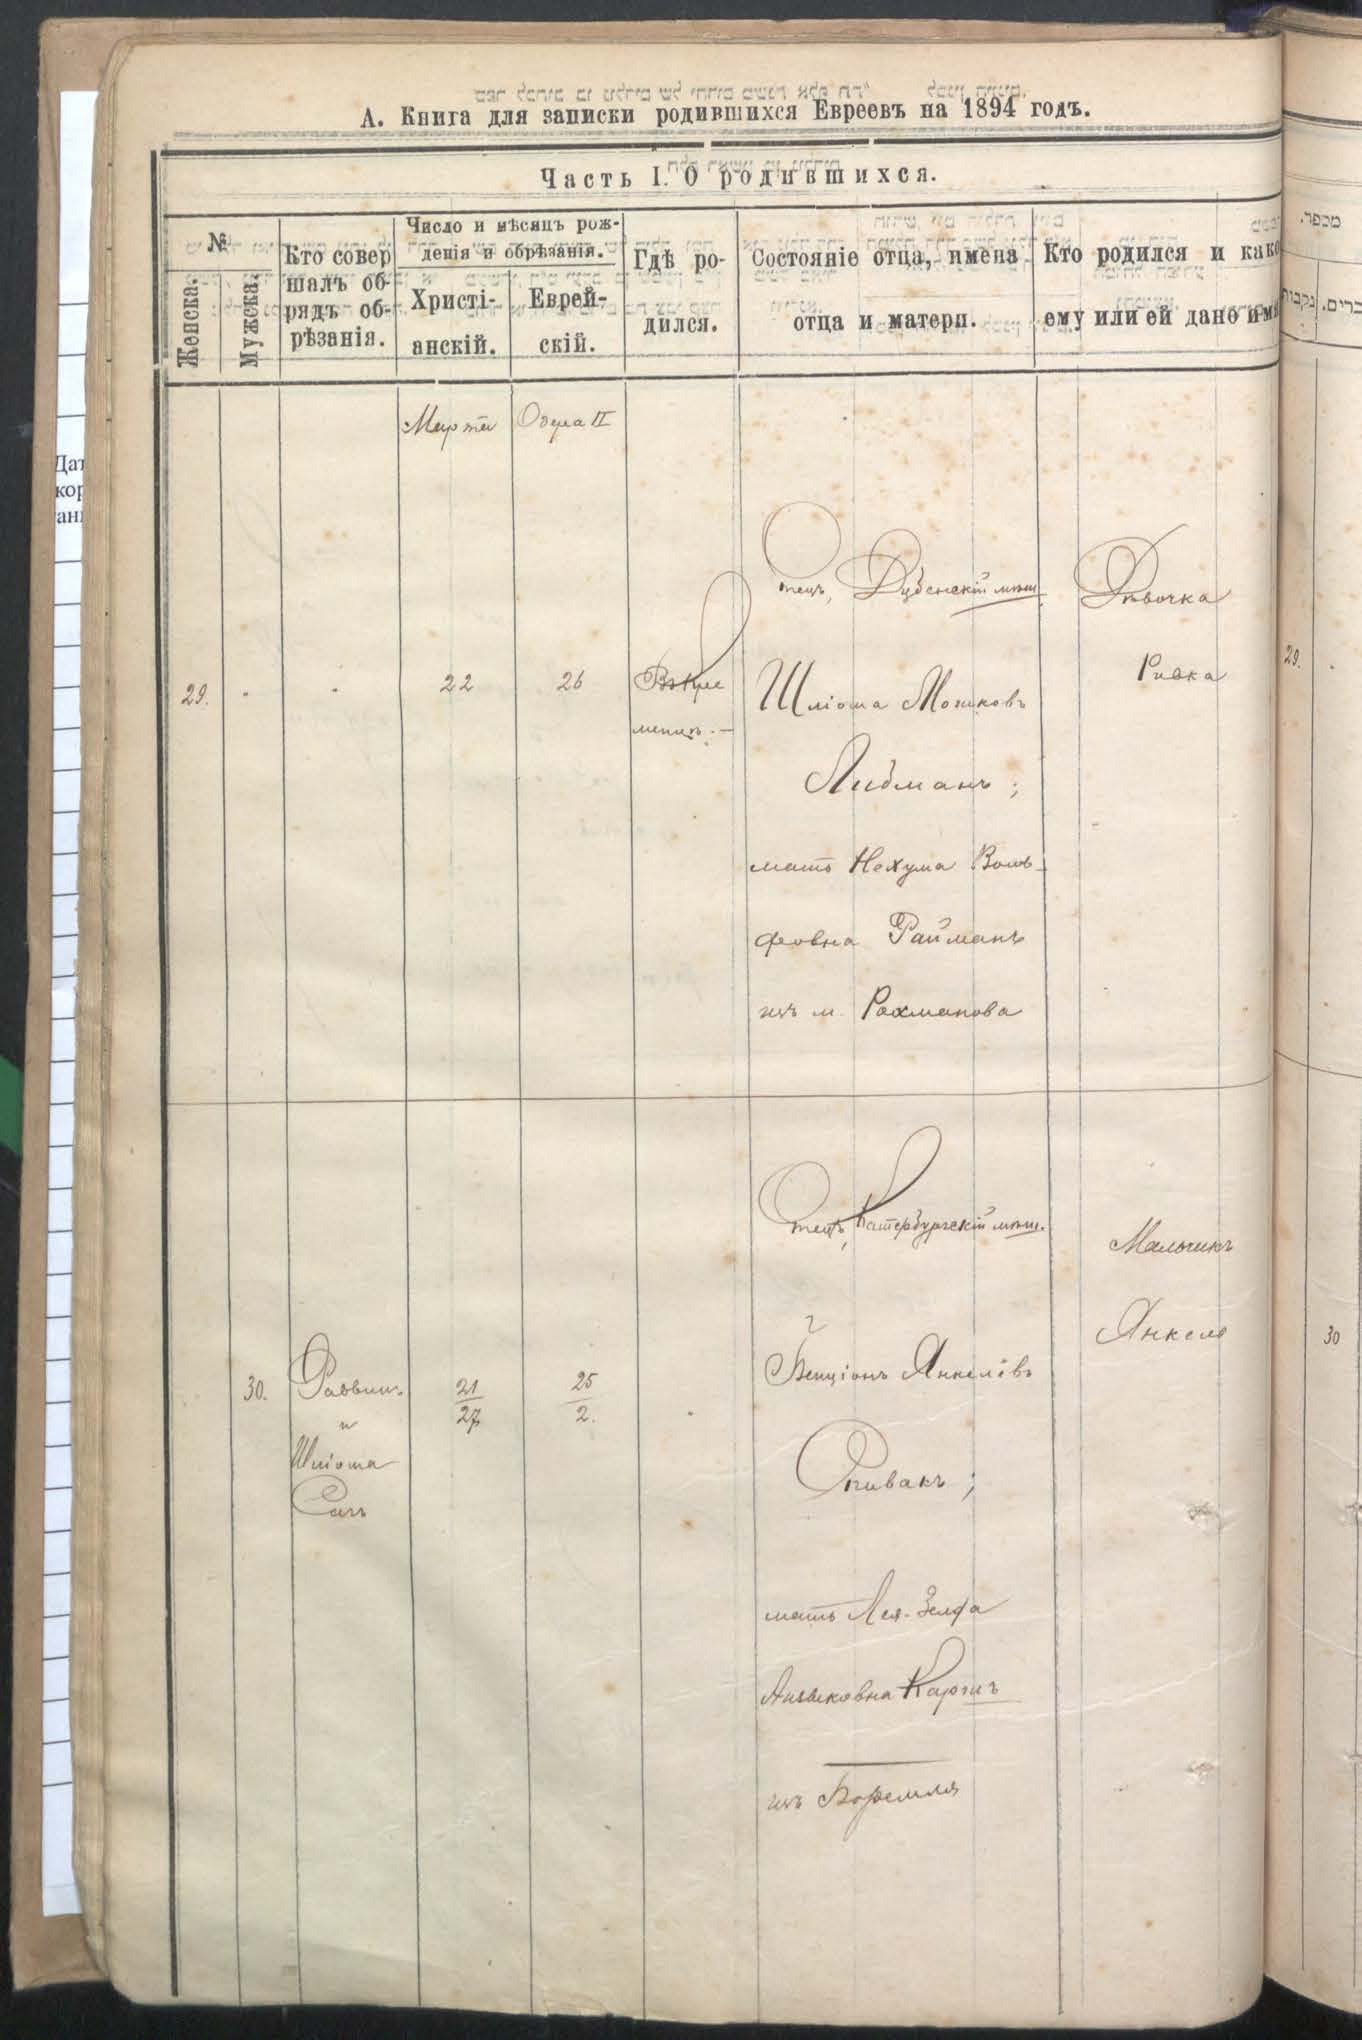 А. Книга для записки родившихся Евреевъ на 1894 годъ.
Часть I. О родившихся.
№
Женска.
Мужска.
Кто совер
шалъ об-
рядъ об-
рѣзанія.
Число и мѣсяцъ рож-
денія и обрѣзанія.
Христі-
анскій.
Еврей-
скій.
Гдѣ ро-
дился.
Состояніе отца, имена
отца и матери.
Кто родился и како
ему или ей дано им
מספר.
נקבות
כרים.
Марта
Одера II
29.
22
26
Въ Кре
менцѣ.—
Отецъ, Дубенскій мѣщ.
Шліома Мошковъ
Либманъ;
мать Нехума Воль-
фовна Райманъ
изъ м. Рахманова
Дѣвочка
Ривка
29.
30.
Раввинъ
и
Шліома
21
27
25
2.
Отецъ, Катербургскій мѣщ.
Бенціонъ Янкелевъ
Спивакъ;
мать Лея-Зелда
изъ Боремля
Мальчикъ
Янкель
30
Дат
кор
ани